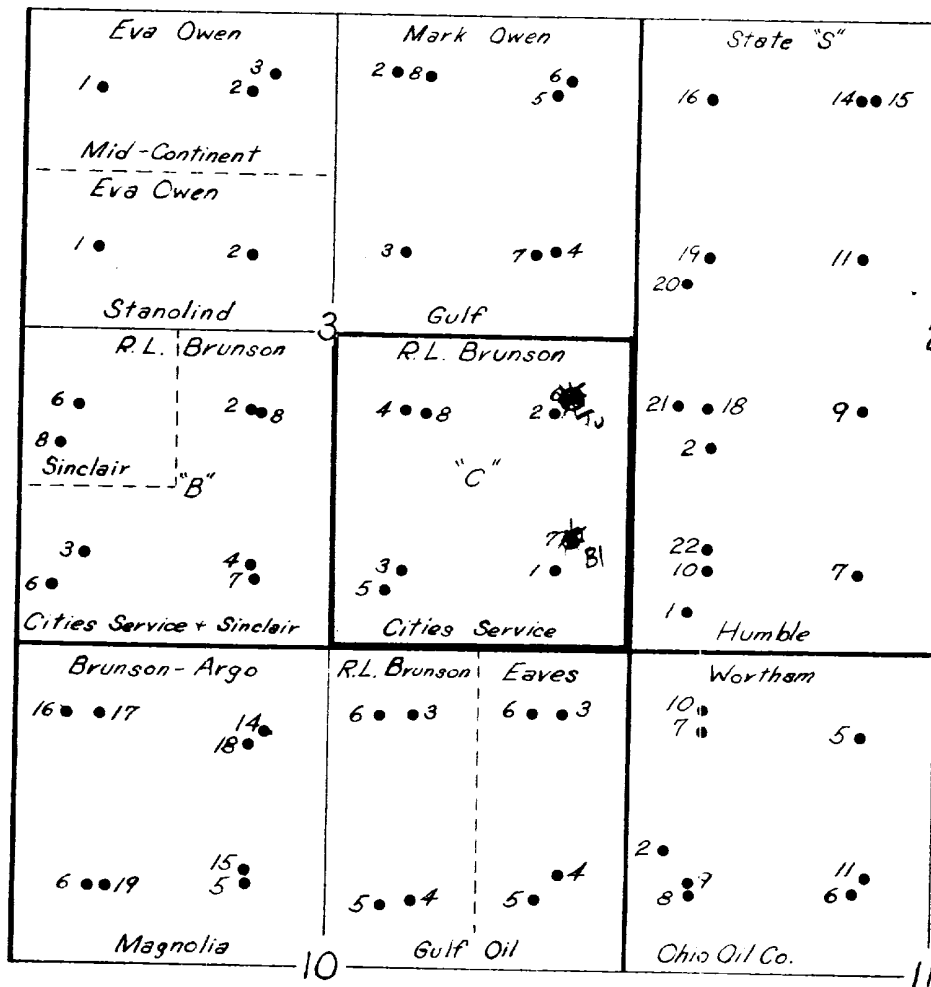 Eva Owen
1 3
2
Mid-Continent
Eva Owen
1 2
Stanolind
Mark Owen
2 8 6
5
3 7 4
Gulf
State "S"
16 14 15
19 11
20
21 18 9
2
22
10 7
1
Humble
3
R.L. Brunson
6 2 8
8
Sinclair
"B"
3 4
6 7
Cities Service + Sinclair
R.L. Brunson
4 8 2
"C"
7 B1
3 1
5
Cities Service
Brunson-Argo
16 17 14
18
15
6 19 5
Magnolia
R.L. Brunson
6 3
5 4
Eaves
6 3
4
5
Gulf Oil
Wortham
10
7 5
2
9 11
8 6
Ohio Oil Co.
10
11